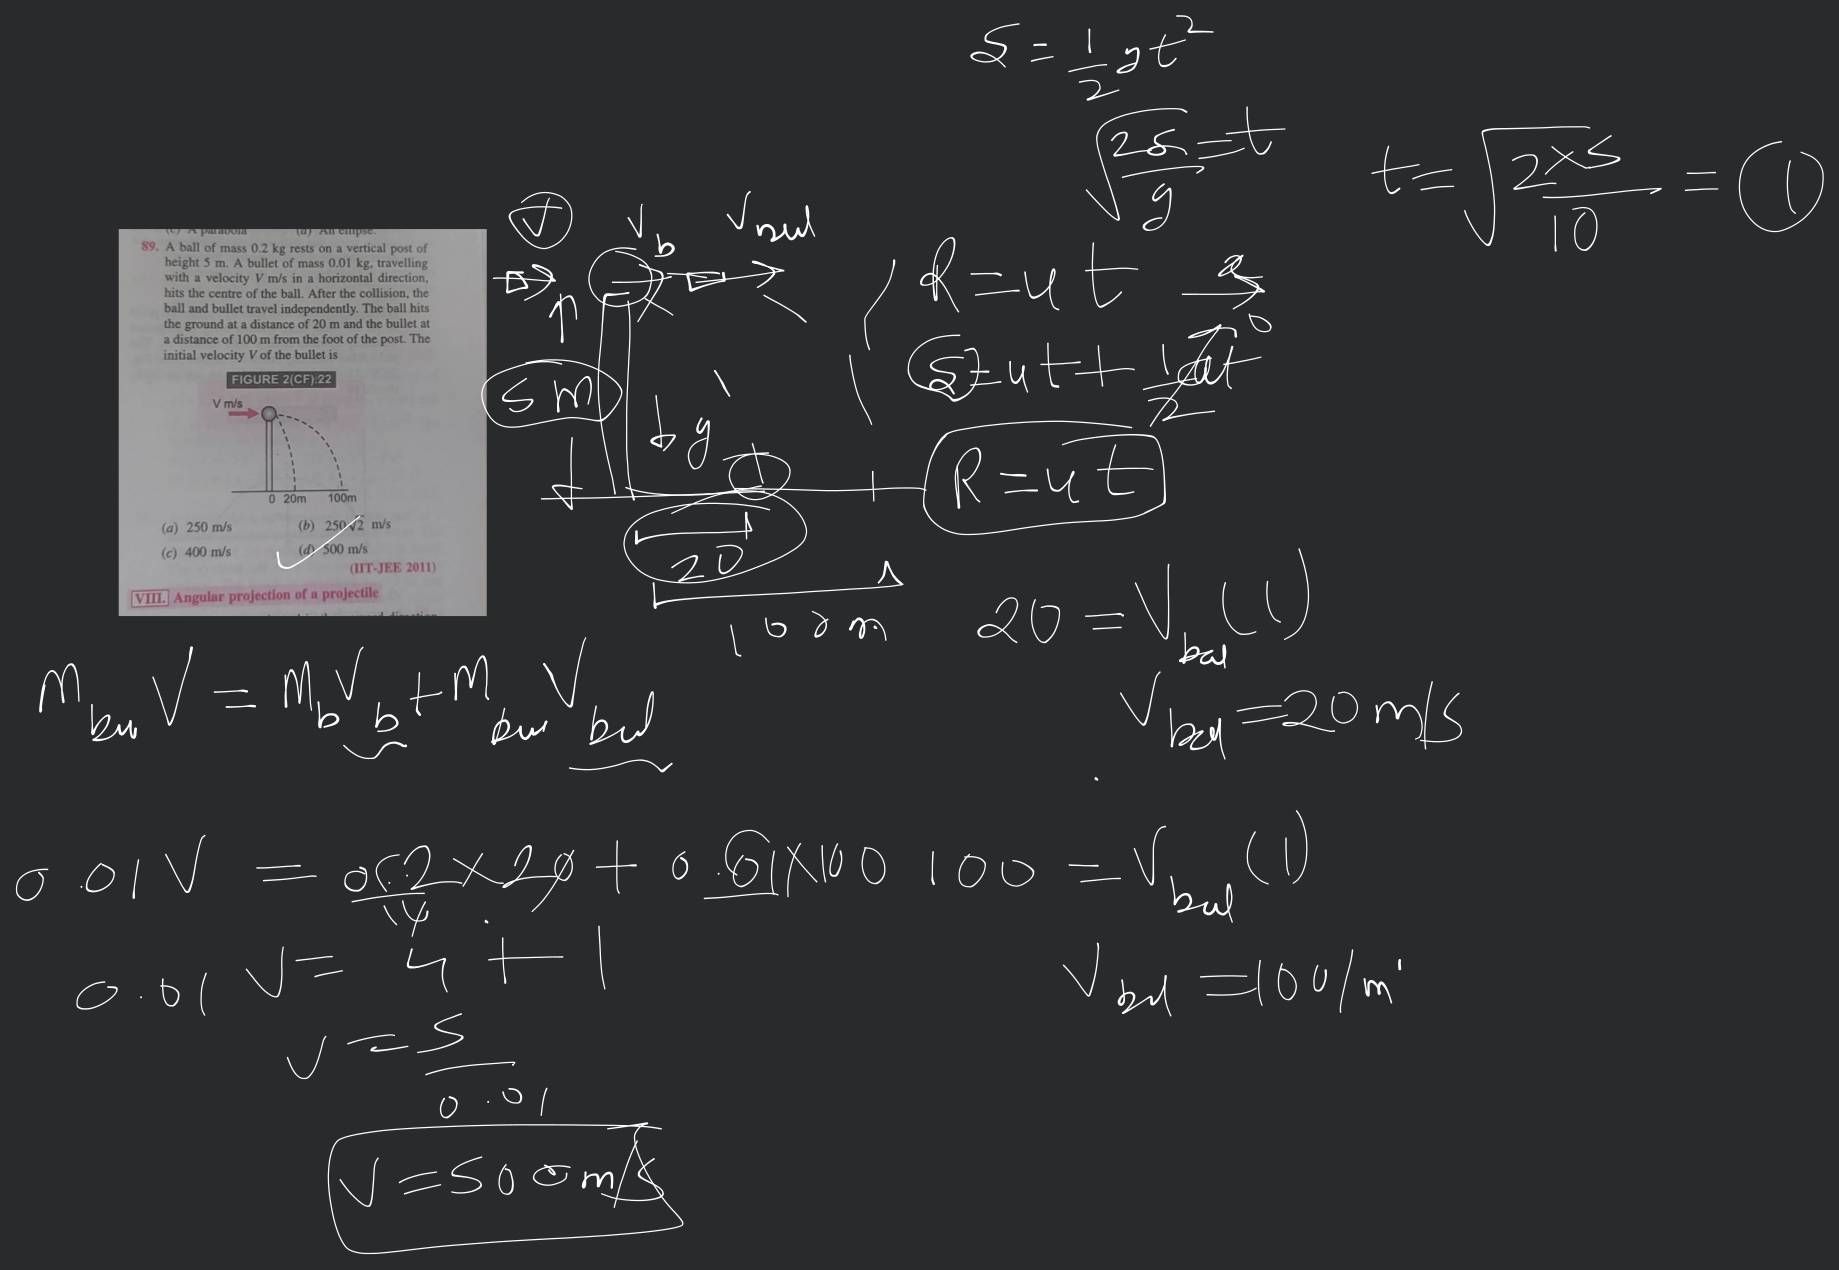 S = 1/2 gt²
√(2s/g) = t
t = √(2×5/10) = 1
V
V_b
V_bul
R = u t
S = ut + 1/2 at
0
5 m
R = u t
20
100 m
(c) A parabola (d) An ellipse.
89. A ball of mass 0.2 kg rests on a vertical post of
height 5 m. A bullet of mass 0.01 kg, travelling
with a velocity V m/s in a horizontal direction,
hits the centre of the ball. After the collision, the
ball and bullet travel independently. The ball hits
the ground at a distance of 20 m and the bullet at
a distance of 100 m from the foot of the post. The
initial velocity V of the bullet is
FIGURE 2(CF).22
V m/s
0 20m 100m
(a) 250 m/s (b) 250√2 m/s
(c) 400 m/s (d) 500 m/s
(IIT-JEE 2011)
VIII. Angular projection of a projectile
20 = V_bal (1)
V_bal = 20 m/s
m_bu V = m_b V_b + m_bu V_bul
0.01 V = 0.2 × 20 + 0.01 × 100
100 = V_bul (1)
0.01 V = 4 + 1
V_bul = 100/m
V = 5/0.01
V = 500 m/s